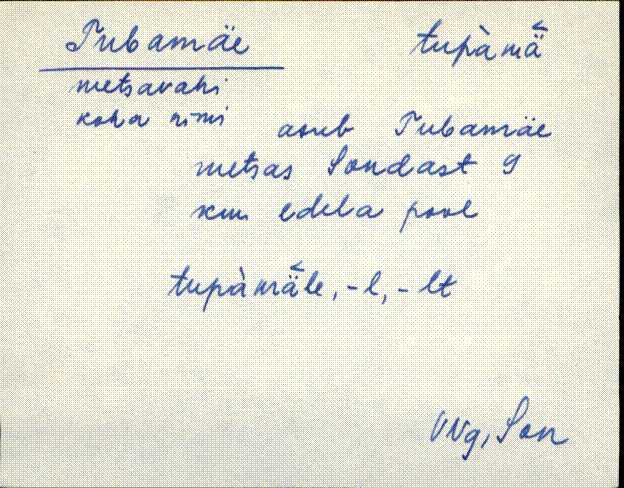 Tubamäe tupàmä̆
metsavahi
koha nimi
asub Tubamäe
metsas Sondast 9
km edela pool
tupàmä̆le, -l, -lt
VNg, Son